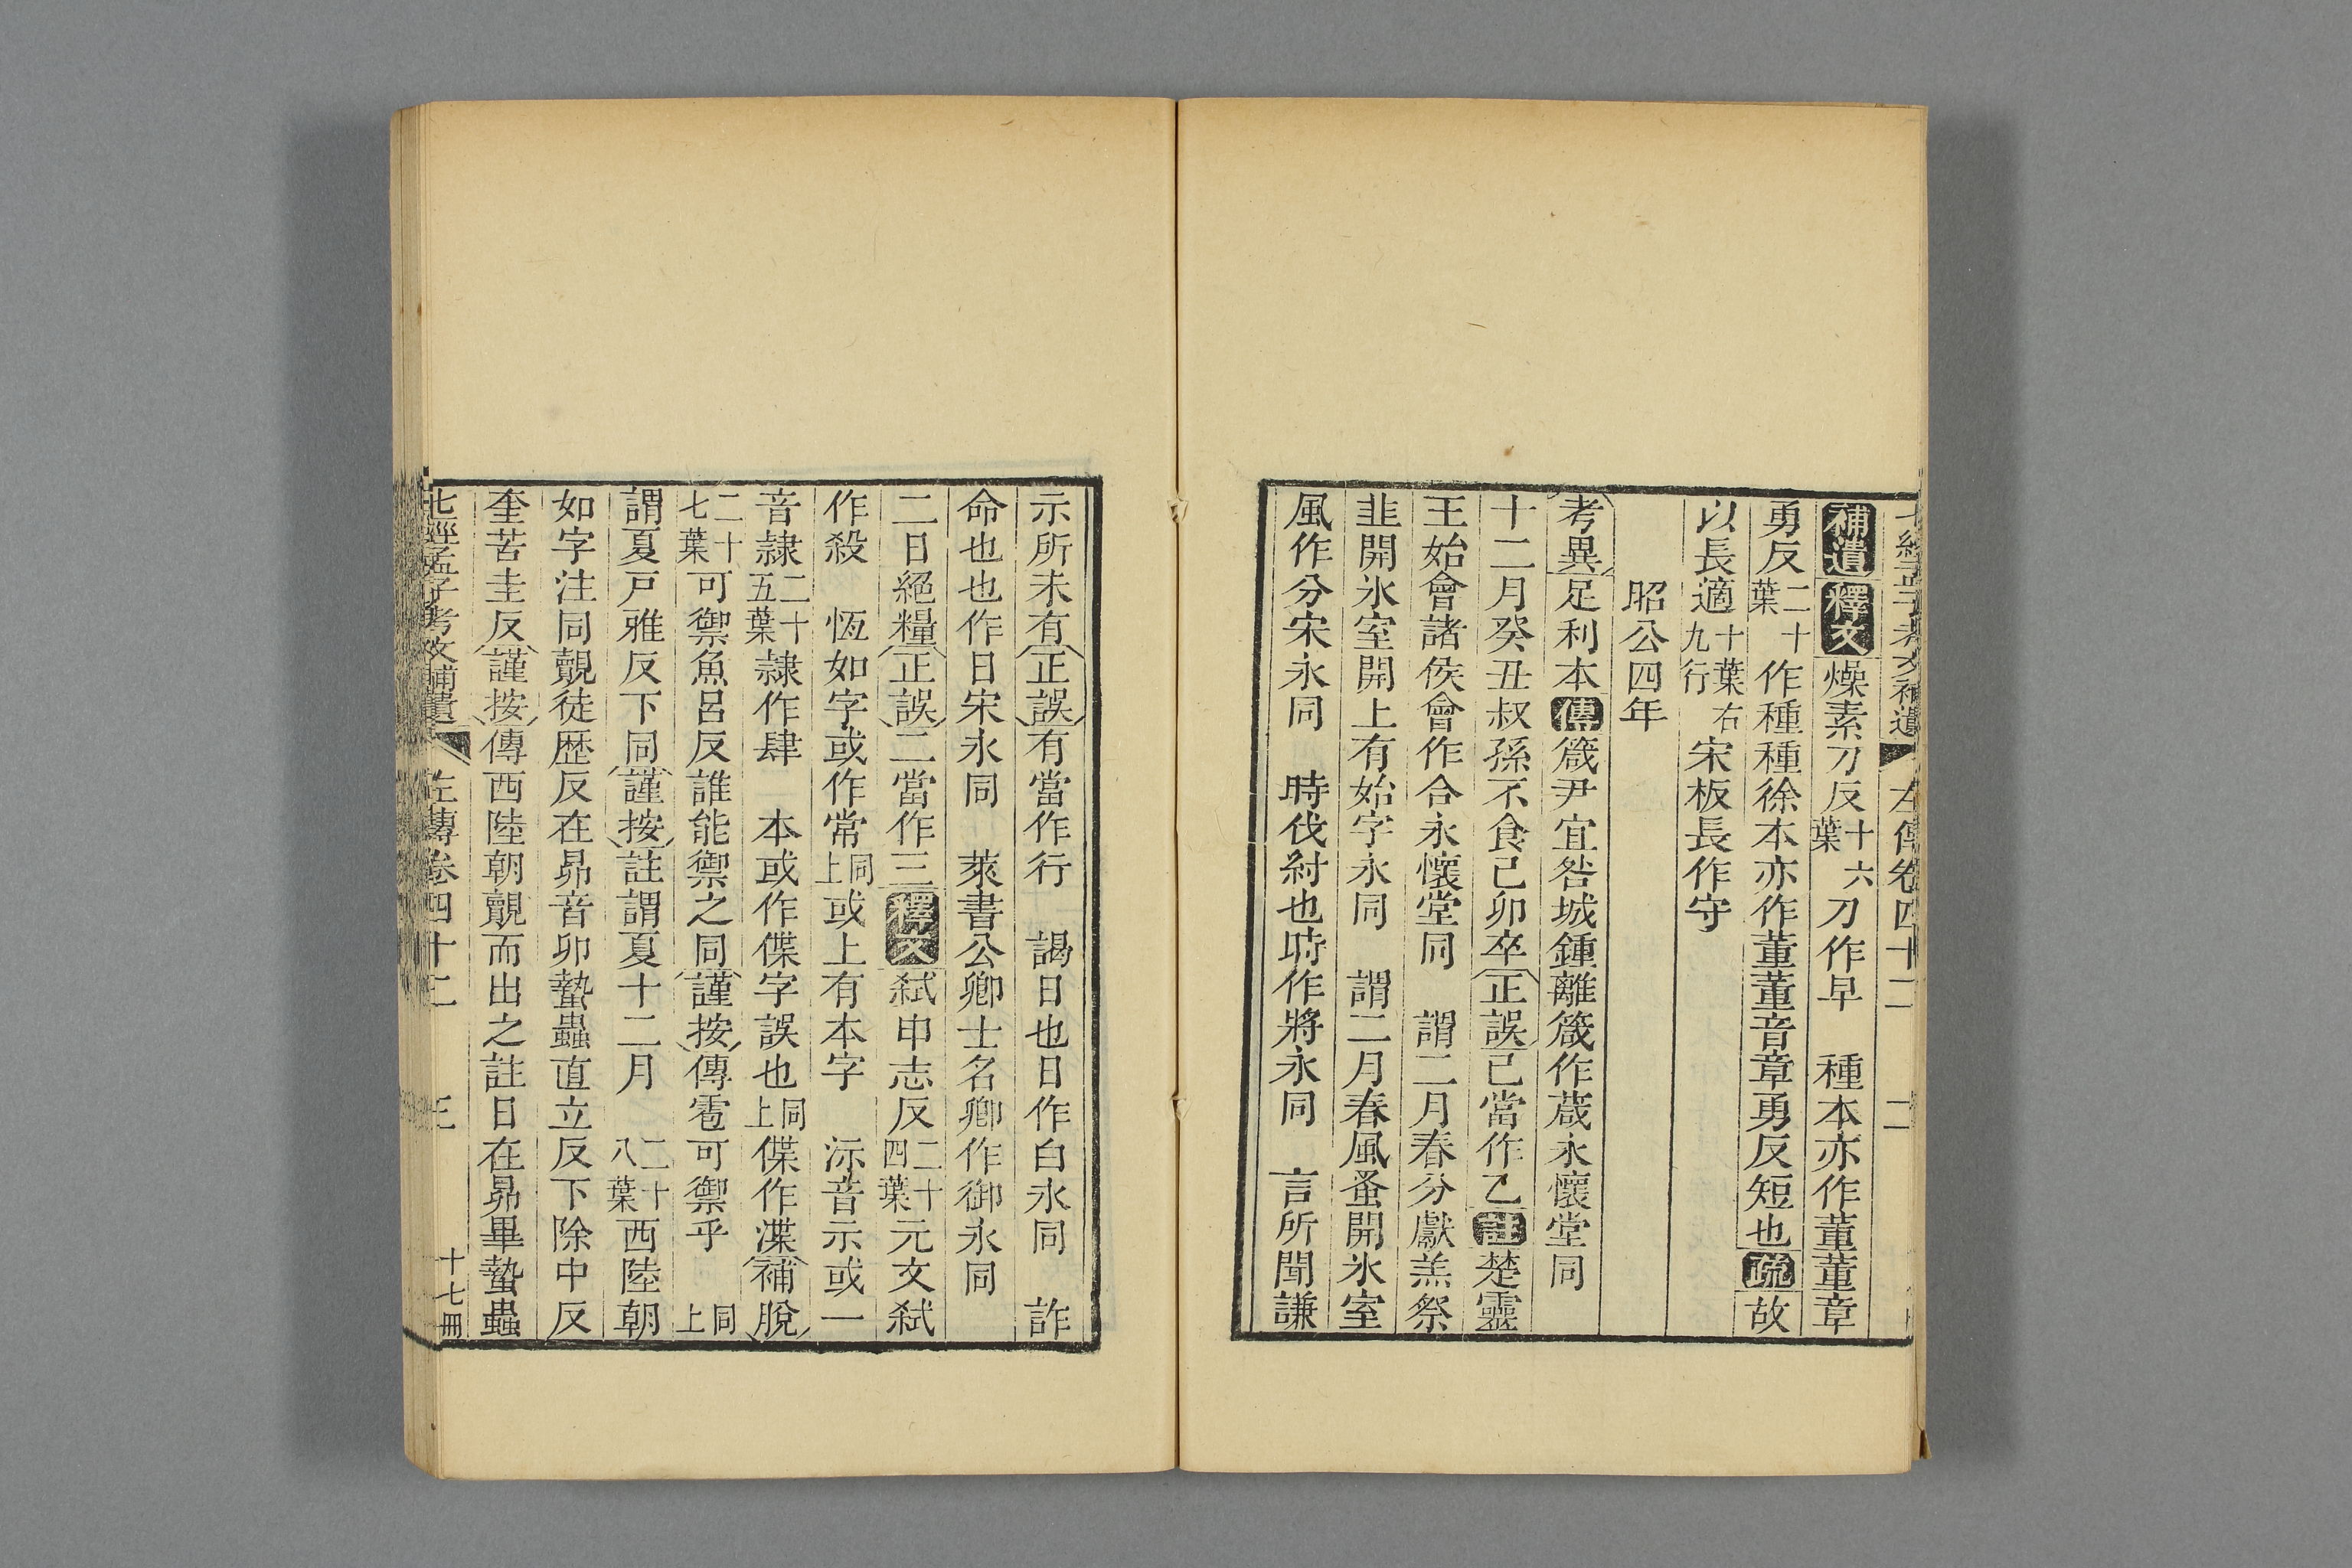 七經孟子考文補遺 左傳卷四十二 二
補遺釋文燥素刀反十六葉刀作早 種本亦作董董章
勇反二十葉作種種徐本亦作董董音章勇反短也疏故
以長適十葉右九行宋板長作守
昭公四年
考異足利本傳箴尹宜咎城鍾離箴作葴永懷堂同
十二月癸丑叔孫不食己卯卒正誤己當作乙註楚靈
王始會諸侯會作合永懷堂同 謂二月春分獻羔祭
韭開氷室開上有始字永同 謂二月春風蚤開氷室
風作分宋永同 時伐紂也時作將永同 言所聞謙
示所未有正誤有當作行 謁日也日作白永同 詐
命也也作日宋永同 萊書公卿士名卿作御永同
二日絕糧正誤二當作三釋文弑申志反二十四葉元文弑
作殺 恆如字或作常同上或上有本字 沶音示或一
音隷二十五葉隷作肆 本或作偞字誤也同上偞作渫補脫
二十七葉可禦魚呂反誰能禦之同謹按傳雹可禦乎 同上
謂夏戸雅反下同謹按註謂夏十二月 二十八葉西陸朝
如字注同覿徒歷反在昴音卯蟄蟲直立反下除中反
奎苦圭反謹按傳西陸朝覿而出之註日在昴畢蟄蟲
七經孟子考文補遺 左傳卷四十二 三 十七冊